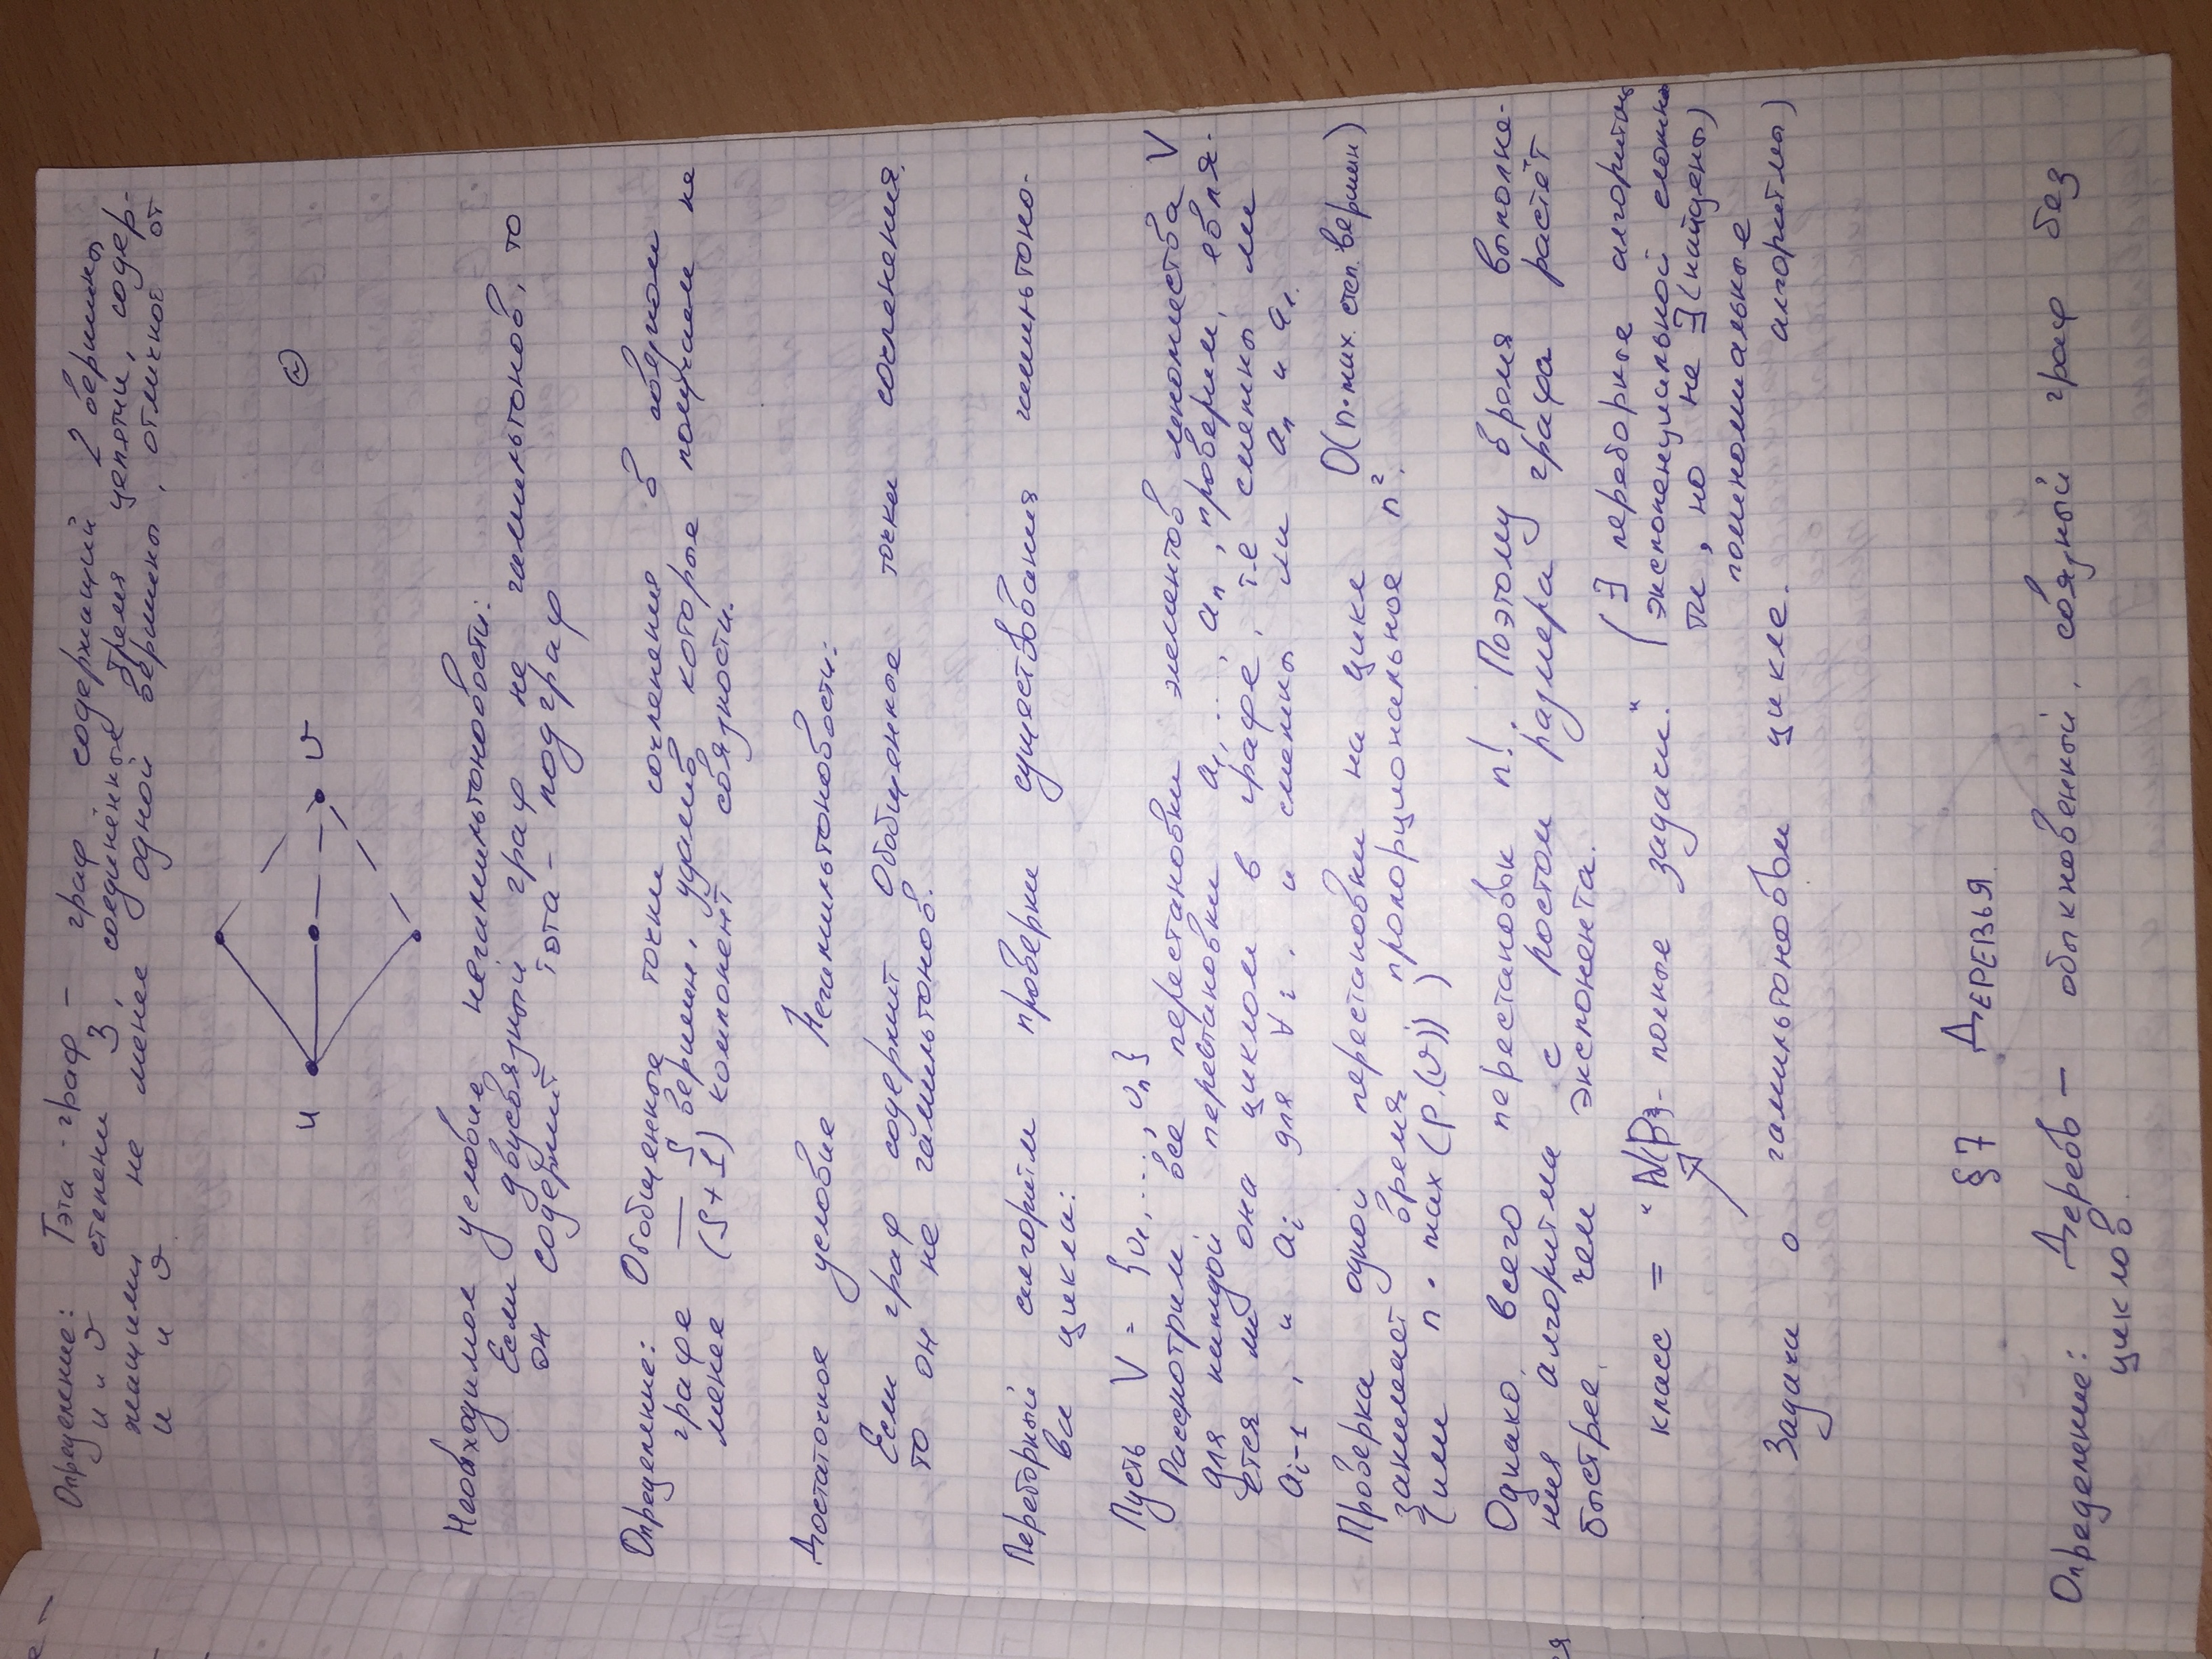 Определение: Тэта-граф – граф содержащий 2 вершины
u и v степени 3, соединённые тремя цепями, содер-
жащими не менее одной вершины, отличной от
u и v.
u v
Необходимое условие негамильтоновости:
Если двусвязный граф не гамильтонов, то
он содержит тэта-подграф
Определение: Обобщенные точки сочленения в связном
графе — S вершин, удалив которые получаем не
менее (S+1) компонент связности.
Достаточное условие Негамильтоновости:
Если граф содержит Обобщенные точки сочленения,
то он не гамильтонов.
Переборный алгоритм проверки существования гамильтоно-
ва цикла:
Пусть V = {v₁, ..., vₙ}
Рассмотрим все перестановки элементов множества V
для каждой перестановки a₁, ..., aₙ, проверим, явля-
ется ли она циклом в графе, т.е смежны ли
aᵢ₋₁, и aᵢ для ∀i, и смежны ли aₙ и a₁.
Проверка одной перестановки на цикл O(n·max. степ. вершин)
занимает время, пропорциональное n².
(или n · max (p.(v)) )
Однако, всего перестановок n!. Поэтому время выполне-
ния алгоритма с ростом размера графа растёт
быстрее, чем экспонента.
класс = "NP - полные задачи." (∃ переборные алгоритмы
экспоненциальной сложнос
ти, но не ∃ (найдены)
полиномиальные
алгоритмы)
Задачи о гамильтоновом цикле.
§7 ДЕРЕВЬЯ.
Определение: Дерево – обыкновенный, связный граф без
циклов.